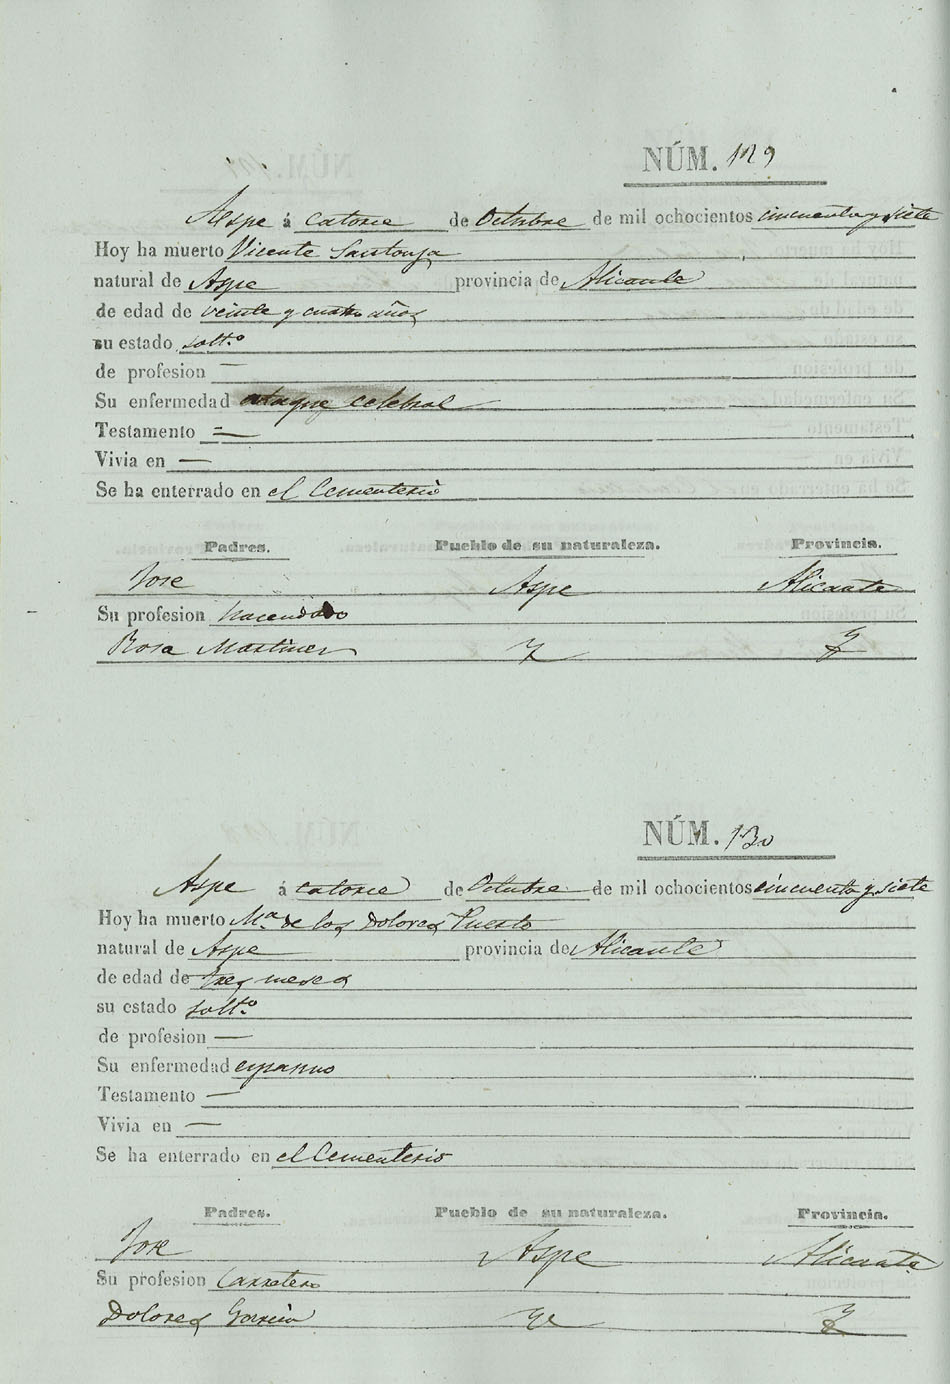 NÚM. 129
Aspe á catorce de Octubre de mil ochocientos cincuenta y siete
Hoy ha muerto Vicente Santonja
natural de Aspe provincia de Alicante
de edad de veinte y cuatro años
su estado solt.o
de profesion —
Su enfermedad ataque celebral
Testamento —
Vivia en —
Se ha enterrado en el Cementerio
Padres. Pueblo de su naturaleza. Provincia.
Jose Aspe Alicante
Su profesion hacendado
Rosa Martinez
NÚM. 130
Aspe á catorce de Octubre de mil ochocientos cincuenta y siete
Hoy ha muerto M.a de los Dolores Puerto
natural de Aspe provincia de Alicante
de edad de tres meses
su estado solt.o
de profesion —
Su enfermedad espasmo
Testamento —
Vivia en —
Se ha enterrado en el Cementerio
Padres. Pueblo de su naturaleza. Provincia.
Jose Aspe Alicante
Su profesion Carretero
Dolores